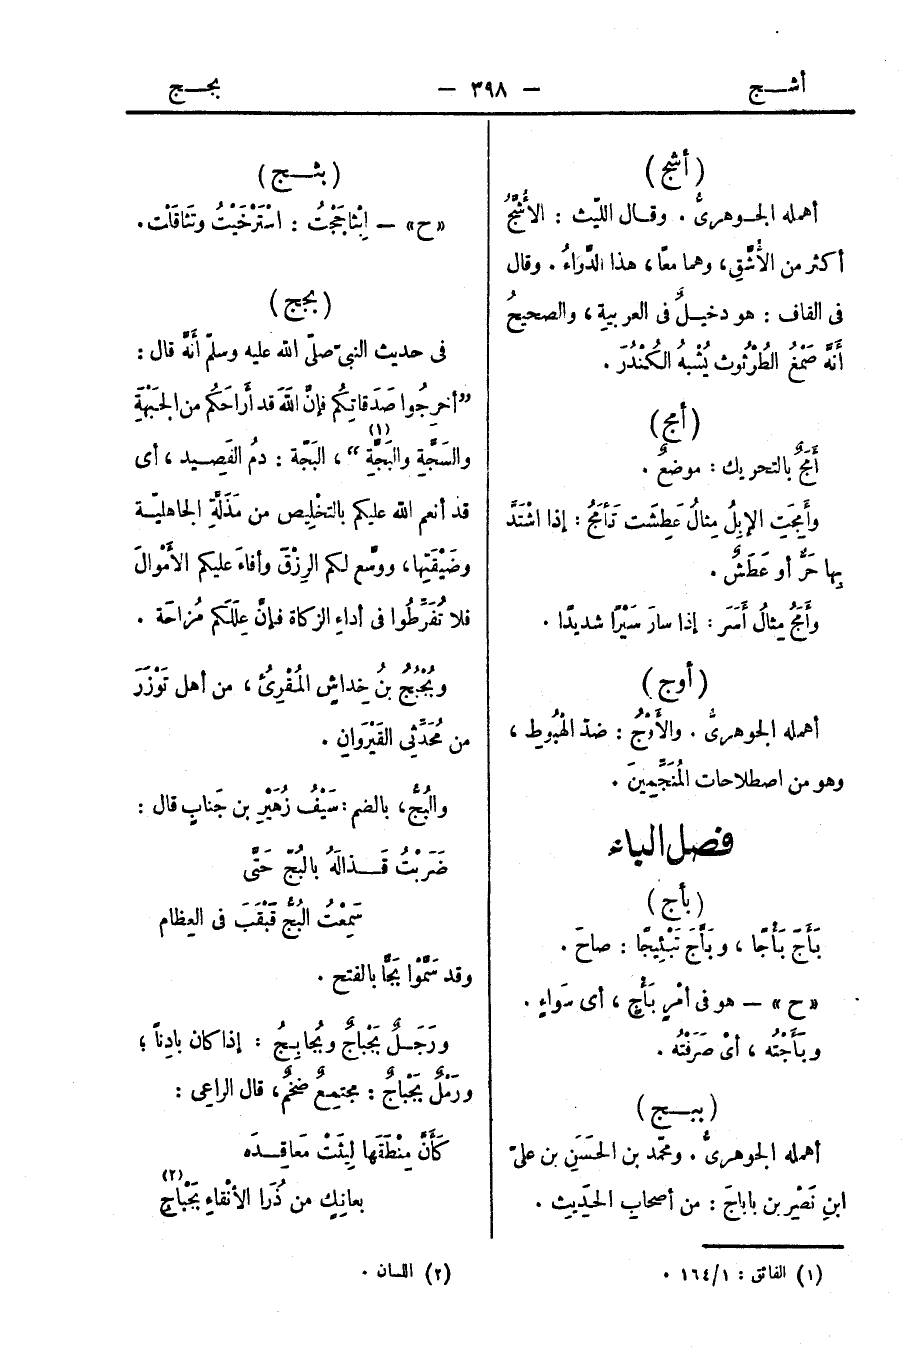 أشـج — ٣٩٨ — بجـج
(أشج)
أهمله الجوهرىُّ . وقـال اللّيث : الأُشَّجُ
أكثر من الأُشَّقِ، وهما معًا، هذا الدَّوَاءُ . وقال
فى القاف : هو دخيـلٌ فى العربيةِ ، والصحيحُ
أنَّهُ صَمْغُ الطُّرْثُوث يُشْبهُ الكُنْدُرَ .
(أمج)
أَمَجٌ بالتحريك : موضعٌ .
وأَمِجَتِ الإبِلُ مِثالُ عَطِشَت تَأمَجُ : إذا اشْتَدَّ
بِها حَرٌّ أو عَطَشٌ .
وأَمَجُ مِثالُ أَسَرَ : إذا سارَ سَيْرًا شديدًا .
(أوج)
أهمله الجوهرىُّ . والأَوْجُ : ضدّ الهُبُوطِ ،
وهو من اصطلاحات المُنَجِّمِينَ .
فصل الباء
(بأج)
بَأَجَ بَأْجًا ، وبَأَّجَ تَبْئِيجًا : صاحَ .
«ح» — هو فى أَمْرٍ بَأْجٍ ، أى سَواءٍ .
وبَأَجْتُه ، أىْ صَرَفْتُه .
(ببـج)
أهمله الجوهرىُّ . ومحمّد بن الحَسَنِ بن علىّ
ابنِ نَصْيرِ بن باباجَ : من أصحابِ الحَديثِ .
(١) الفائق : ١٦٤/١ .
(بثـج)
«ح» — ابْثاجَجْتُ : اسْتَرْخَيْتُ وتَثَاقَلْت .
(بجج)
فى حديث النبىّ صلّى الله عليه وسلّم أنَّهُ قال :
“أخرِجُوا صَدَقاتِكُم فإنَّ اللهَ قد أراحَكُم من الجَبْهَةِ
والسَّجَّةِ والبَجَّةِ (١) “ ، البَجَّة : دمُ الفَصِـيد ، أى
قد أنعم الله عليكم بالتخْلِيص من مَذَلَّةِ الجاهليّـة
وضَيْقَتِها ، ووسَّع لكم الرِزْقَ وأفاءَ عليكم الأمْوالَ
فلا تُفَرِّطُوا فى أداءِ الزكاة فـإنَّ عِلَلَكم مُزاحَة .
وبُجْبُجُ بنُ خِداشٍ المُقْرِئُ ، من أهل تَوْزَرَ
من مُحَدِّثِى القَيْرَوانِ .
والبُجُّ، بالضم : سَيْفُ زُهَيْرِ بن جَنابٍ قال :
ضَرَبْتُ قَــذالَهُ بالبُجّ حَتَّى
سَمِعْتُ البُجَّ قَبْقَبَ فى العِظام
وقد سَمَّوْا بَجًّا بالفتح .
ورَجـلٌ بَجْباجٌ وبُجابِـجٌ : إذا كان بادِنًا ؛
ورَمْلٌ بَجْباجٌ : مجتمِـعٌ ضَخْمٌ ، قال الراعِى :
كَأَنَّ مِنْطَقَها لِيثَتْ مَعاقِـدُه
بعانِكٍ من ذُرَا الأنْقاءِ بَجْباجِ (٢)
(٢) اللسان .